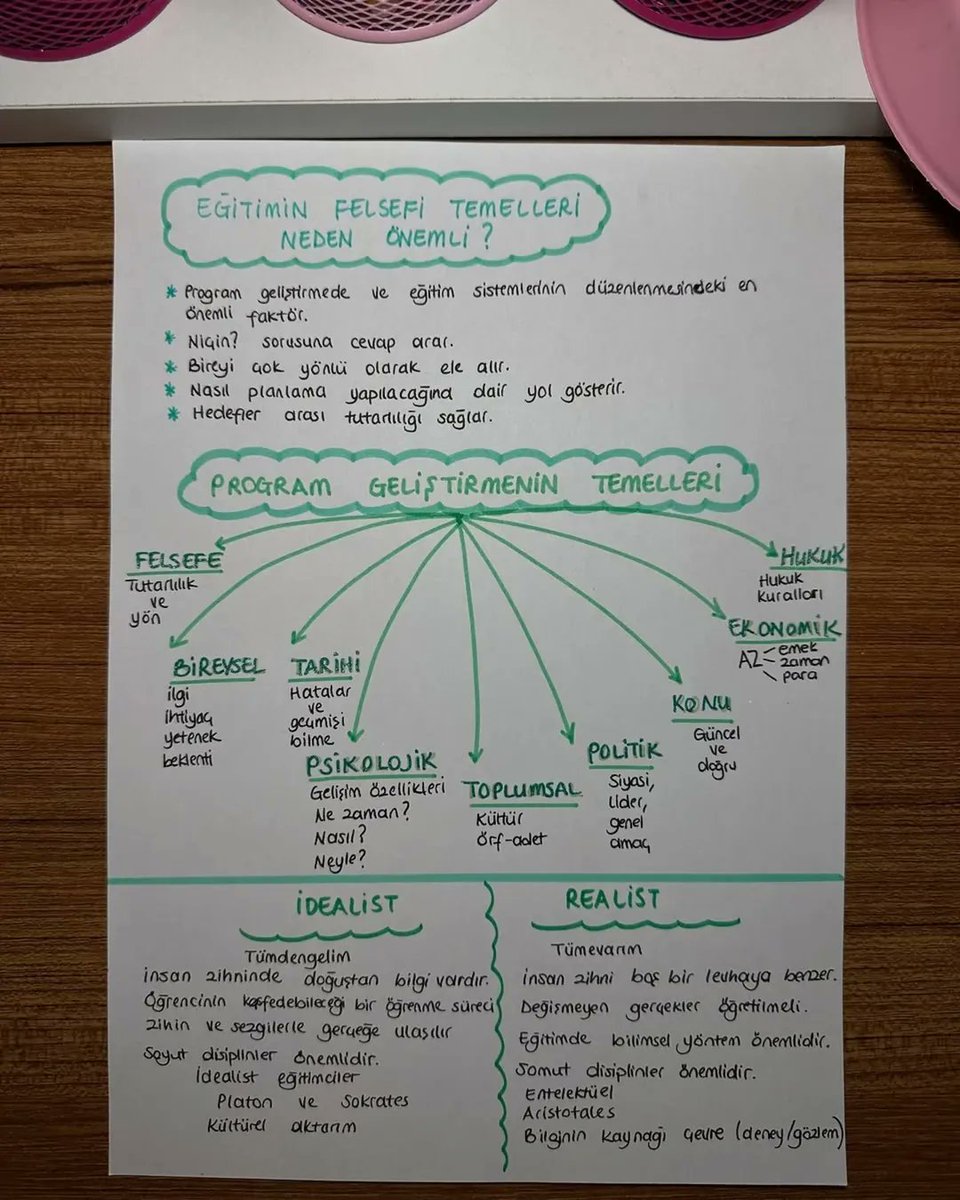 EĞİTİMİN FELSEFİ TEMELLERİ
NEDEN ÖNEMLİ?
* Program geliştirmede ve eğitim sistemlerinin düzenlenmesindeki en
önemli faktör.
* Niçin? sorusuna cevap arar.
* Bireyi çok yönlü olarak ele alır.
* Nasıl planlama yapılacağına dair yol gösterir.
* Hedefler arası tutarlılığı sağlar.
PROGRAM GELİŞTİRMENİN TEMELLERİ
FELSEFE
Tutarlılık
ve
yön
BİREYSEL
ilgi
ihtiyaç
yetenek
beklenti
TARİHİ
Hatalar
ve
geçmişi
bilme
PSİKOLOJİK
Gelişim özellikleri
Ne zaman?
Nasıl?
Neyle?
TOPLUMSAL
Kültür
Örf-adet
POLİTİK
Siyasi,
lider,
genel
amaç
KONU
Güncel
ve
doğru
EKONOMİK
AZ emek
zaman
para
HUKUK
Hukuk
Kuralları
İDEALİST
Tümdengelim
insan zihninde doğuştan bilgi vardır.
Öğrencinin keşfedebileceği bir öğrenme süreci
zihin ve sezgilerle gerçeğe ulaşılır
Soyut disiplinler önemlidir.
İdealist eğitimciler
Platon ve Sokrates
Kültürel aktarım
REALİST
Tümevarım
insan zihni boş bir levhaya benzer.
Değişmeyen gerçekler öğretilmeli.
Eğitimde bilimsel yöntem önemlidir.
Somut disiplinler önemlidir.
Entelektüel
Aristotales
Bilginin kaynağı çevre (deney/gözlem)